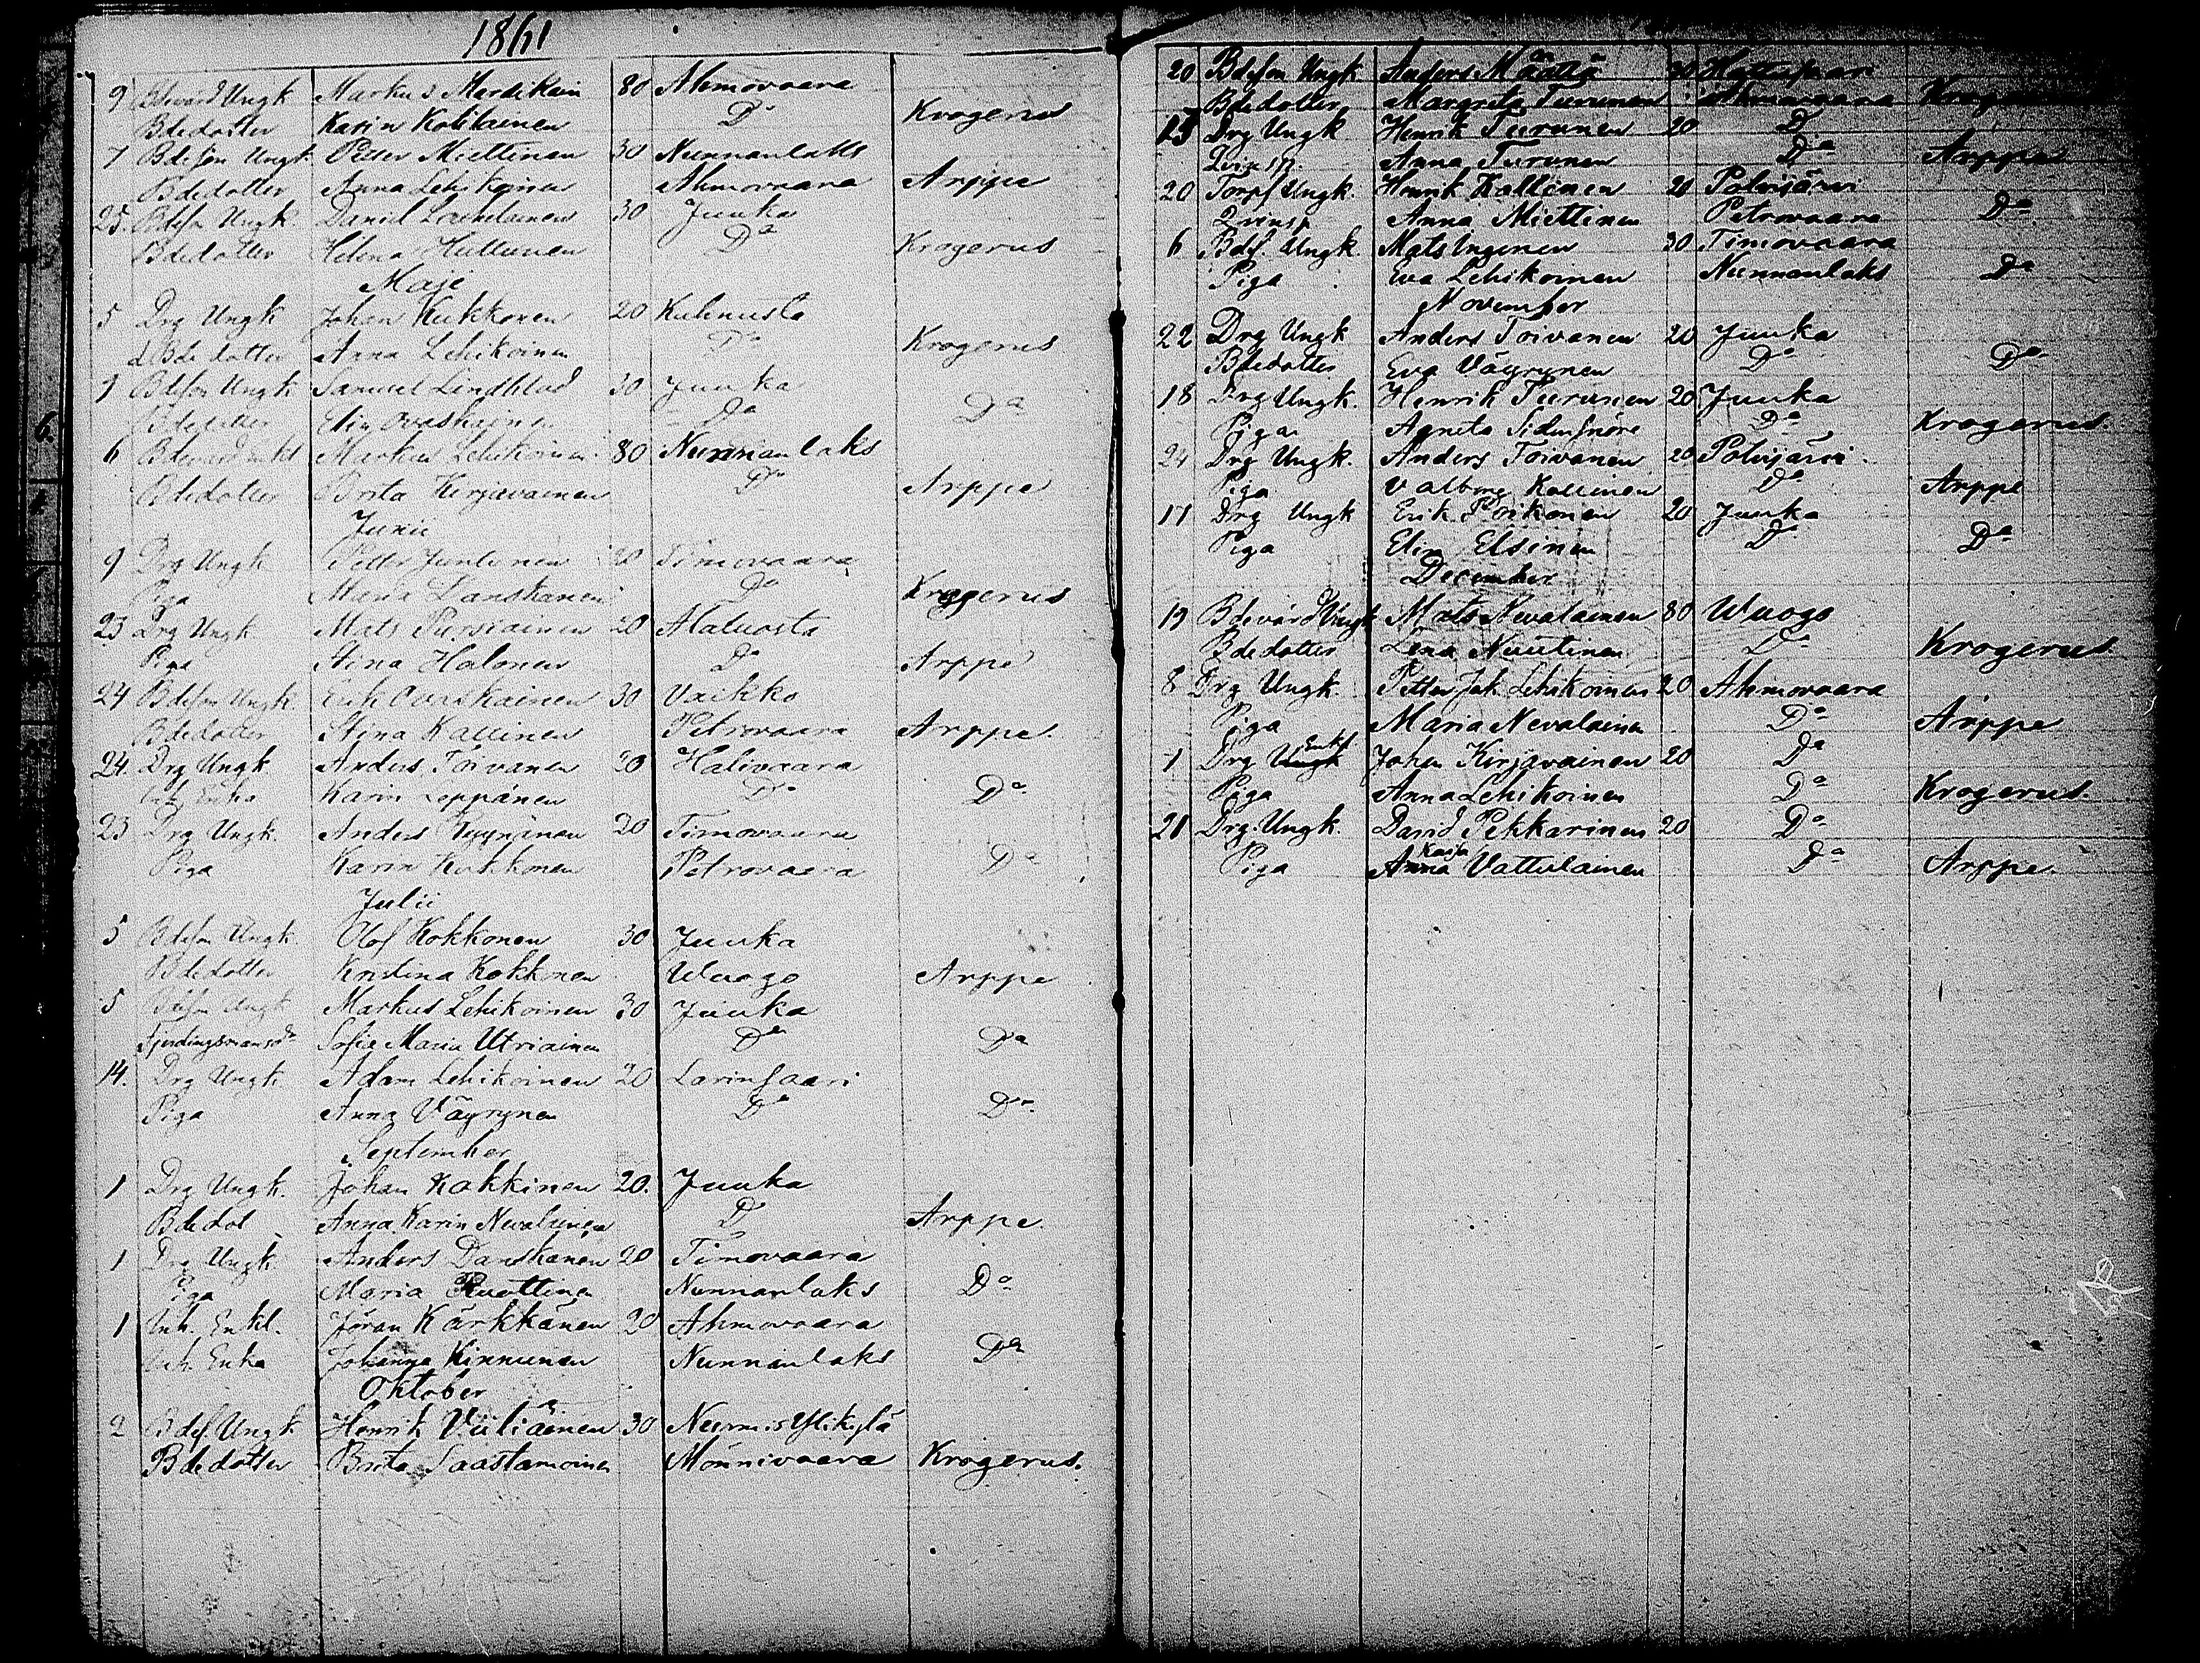 1861
9 Bdevärd Ungk Markus Mardikain 80 Ahmovaara
Bdedotter Karin Kotilainen Do Krogerus
7 Bdeson Ungk Petter Miettinen 30 Nunnanlaks
Bdedotter Anna Lehikoinen Ahmovaara Arppe
25. Bdeson Ungk Daniel Laukkanen 30 Juuka
Bdedotter Helena Huttunen Do Krogerus
Maje
5 Drg Ungk Johan Kukkonen 20 Kuhnusta
d. Bdedotter Anna Lehikoinen Do Krogerus
7 Bdeson Ungk Samuel Lindblad 30 Juuka
Bdedotter Elin Ovaskainen Do Do
6 Bdevärd enkl Markus Lehikoinen 80 Nunnanlaks
Bdedotter Brita Kirjavainen Do Arppe
Junii
9 Drg Ungk Petter Juntunen 20 Timovaara
Piga Maria Danskanen Do Krogerus
23 Drg Ungk Mats Pursiainen 20 Matuosta
Piga Stina Halonen Do Arppe
24 Bdeson Ungk Erik Ovaskainen 30 Vaikko
Bdedotter Stina Kallinen Petrovaara Arppe.
24. Drg Ungk Anders Toivanen 20 Halivaara
Inh Enka Karin Leppänen Do Do
23 Drg Ungk. Anders Ryynänen 20 Timovaara
Piga Karin Kukkonen Petrovaara Do
Julii
5 Bdeson Ungk Olof Kokkonen 30 Juuka
Bdedotter Kristina Kokkonen Wuogo Arppe
5 Bdeson Ungk Markus Lehikoinen 30 Juuka
Fjerdingsmansdr Sofia Maria Utriainen Do Do
14. Drg Ungk Adam Lehikoinen 20 Larinsaari
Piga Anna Väyrynen Do Do
September
1 Drg Ungk. Johan Kokkinen 20. Juuka
Bdedot Anna Karin Nevalainen D Arppe
1 Drg Ungk Anders Danskanen 20 Timovaara
Piga Maria Ruottina Nunnanlaks Do
1 Inh. Enkl. Jöran Kärkkänen 20 Ahmovaara
Inh. Enka Johanna Kinnunen Nunnanlaks Do
Oktober
2 Bdes. Ungk Henrik Väliäinen 30 Nurmis Ylikylä
Bdedotter Brita Saastamoinen Mönnivaara Krogerus.
20 Bdeson Ungk Anders Määttä 30 Hattusaari
Bdedotter Margreta Turunen Ahmovaara Krogerus
13 Drg Ungk. Henrik Turunen 20 D
Qvinsp. Anna Turunen Do Arppe
20 Torpf Ungk. Henrik Kallinen 20 Polvijärvi
Qvinsp Anna Miettinen Petrovaara Do
6 Bdes. Ungk. Mats Ingenen 30 Timovaara
Piga Eva Lehikoinen Nunnanlaks Do
November
22 Drg Ungk Anders Toivanen 20 Juuka
Bdedotter Eva Väyrynen Do Do
18 Drg Ungk. Henrik Turunen 20 Juuka
Piga Agneta Sidensnöre Do Krogerus.
24 Drg Ungk. Anders Toivanen 20 Polvijärvi
Piga Valborg Kallinen Do Arppe
17 Drg Ungk Erik Poikonen 20 Juuka
Piga Elin Elsinen D Do
December
19 Bdevärd Ungk Mats Nevalainen 80 Wuogo
Bdedotter Lena Nuutinen Do Krogerus
8 Drg Ungk. Petter Joh Lehikoinen 20 Ahmovaara
Piga Maria Nevalainen Do Arppe
1 Drg Ungk Enkl Johan Kirjavainen 20 Do
Piga Anna Lehikoinen Do Krogerus.
21 Drg. Ungk. David Pekkarinen 20 Do
Piga Anna Kaisa Vattulainen Do Arppe.